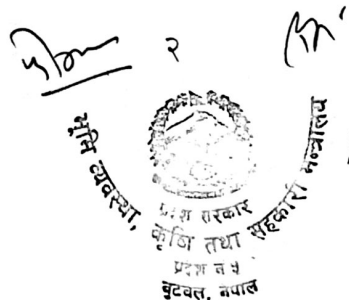 २
भूमि व्यवस्था, कृषि तथा सहकारी मन्त्रालय
प्रदेश सरकार
प्रदेश नं ५
बुटवल, नेपाल